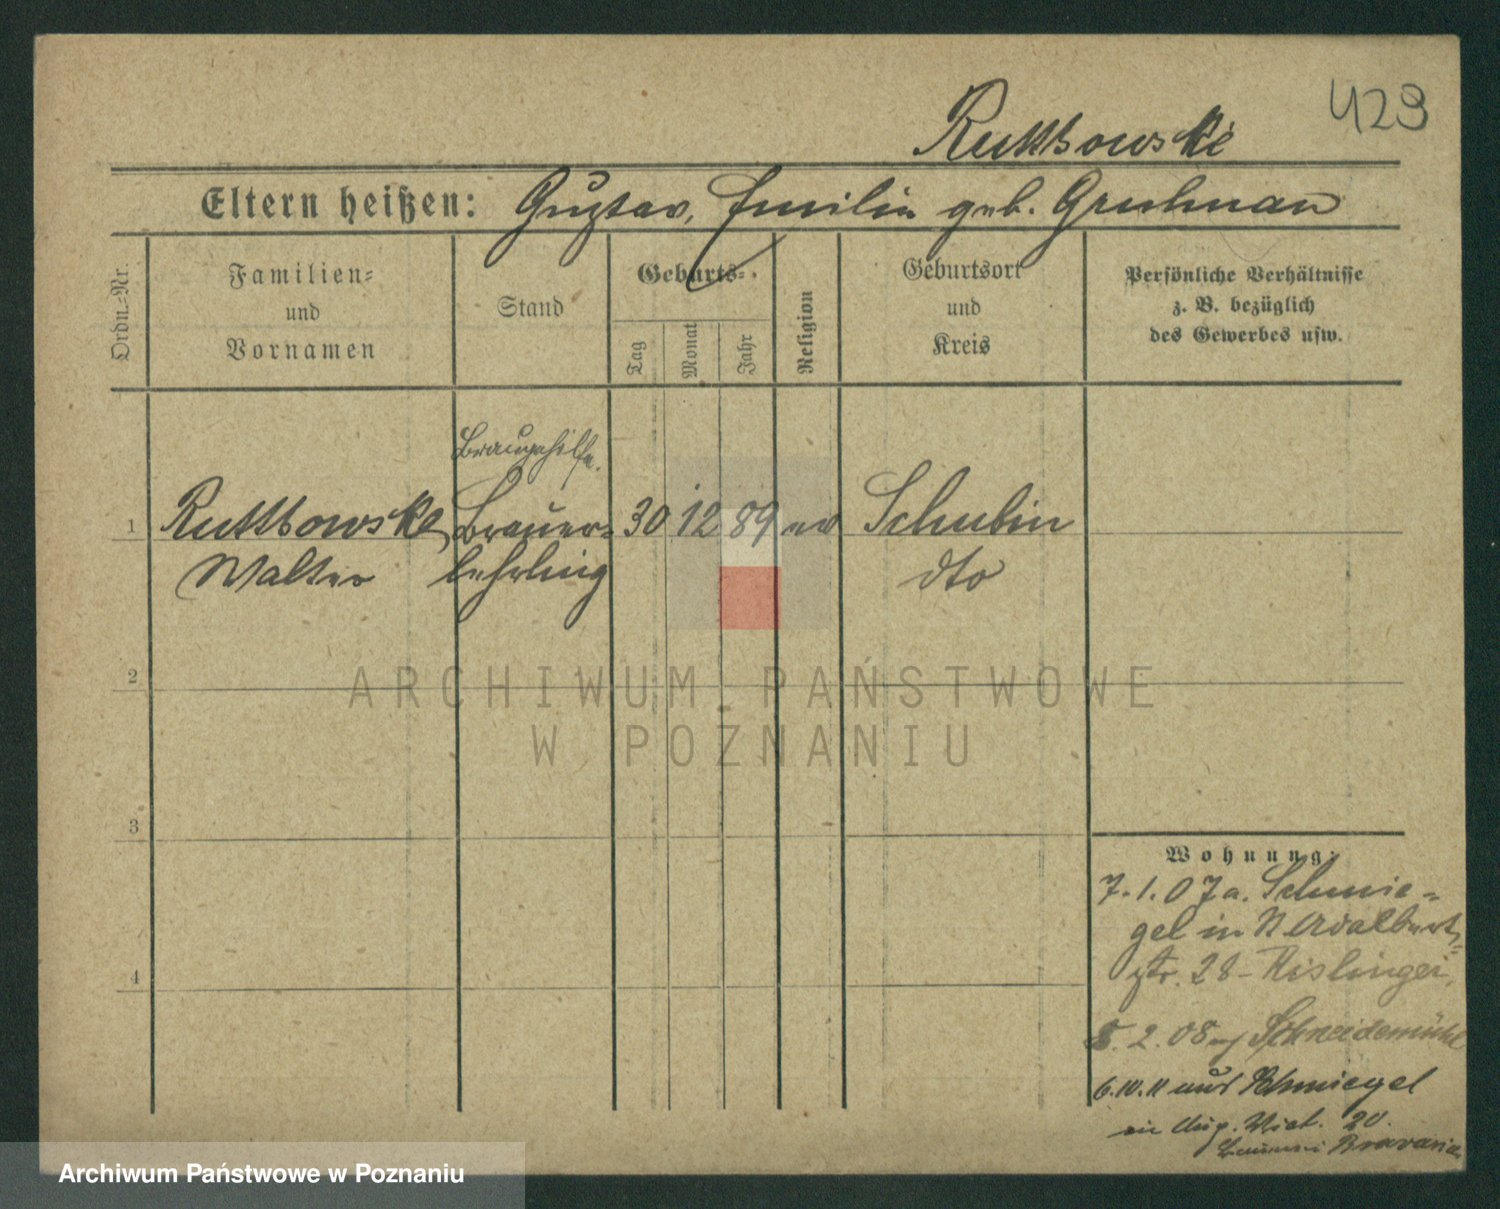 429
Ruttkowski
Eltern heißen: Gustav, Emilie geb. Gruhnau
Ordn.-Nr.
Familien-
und
Vornamen
Stand
Geburts-
Tag
Monat
Jahr
Religion
Geburtsort
und
Kreis
Persönliche Verhältnisse
z. B. bezüglich
des Gewerbes usw.
Braugehilfe.
1 Ruttkowski, Brauer- 30 12 89 ev Schubin
Walter lehrling dto
2
ARCHIWUM PAŃSTWOWE
W POZNANIU
3
Wohnung:
7.1.07 a. Schmie-
gel in N Adalbert-
4
str. 28 -
8.2.08 Schneidemühl
6.10.11 aus Schmiegel
20.
Bavaria
Archiwum Państwowe w Poznaniu